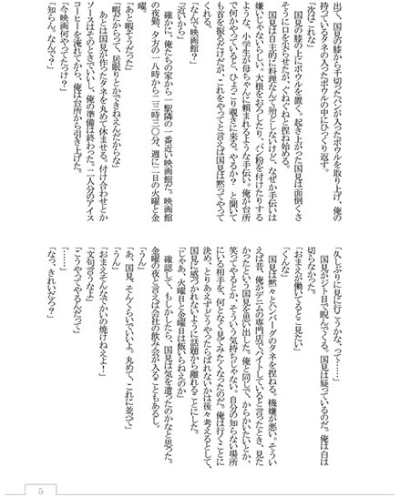 出て、国見の膝から千切ったパンが入ったボウルを取り上げ、俺の
持っているタネの入ったボウルの中にひっくり返す。
「次はこれな」
国見の膝の上にボウルを置く。起き上がった国見は面倒くさ
そうに口を尖らせたが、ぐねぐねと捏ね始める。
国見は自主的に料理なんて殆どしないけど、なぜか手伝いは
嫌いじゃないらしい。大根をおろしたり、パン粉を付けたりする
ような、小学生が母ちゃんに頼まれるような手伝い。俺が台所
で何かやっていると、ひょっこり覗きに来る。やるか? と聞いて
も首を振るだけだが、これをやってと言えば国見は黙ってやって
くれる。
「なんで映画館?」
「近いから」
確かに、俺たちの家から一駅隣の一番近い映画館だ。映画館
の夜勤。夕方の一八時から二三時三〇分、週に二日の火曜と金
曜。
「あと暇そうだった」
「暇だからって、居眠りとかできねえんだからな」
あとは国見が作ったタネを丸めて休ませる。付け合わせとか
ソースはそのときでいいし、俺の準備は終わった。二人分のアイス
コーヒーを淹れてから、俺は台所から引き上げた。
「今映画何やってたっけ?」
「知らん。なんで?」
「久しぶりに見に行こうかな、って……」
国見がジト目で睨んでくる。国見は疑っているのだ。俺は白は
切らなかった。
「おまえが働いてるとこ見たい」
「くんな」
国見は黙々とハンバーグのタネを捏ねる。機嫌が悪い。そうい
えば昔、俺がデニムの専門店でバイトしていると言ったとき、見た
かったという国見を思い出した。俺と同じで、からかいたいとか、
笑ってやるとか、そういう気持ちじゃない。自分の知らない場所
にいる相手を、何となく見てみたくなったのだ。俺は行くことに
決め、とりあえずどうやったらばれないかは後々考えるとして、
国見に感づかれないように話題から離れることにした。
「じゃあ、火曜日と金曜は飯いらねえのか」
「うん」
確認し、もしかしたら、国見は気を遣ったのかなと思った。
金曜の夜と言えば会社の飲み会が入ることもあるし。
「あ、国見、そんくらいでいいよ。丸めて、これに並べて」
「うん」
「おまえそんなでかいの焼けねえよ!」
「文句言うなよ」
「こうやってやるんだって」
「……」
「なっ、きれいだろ?」
5